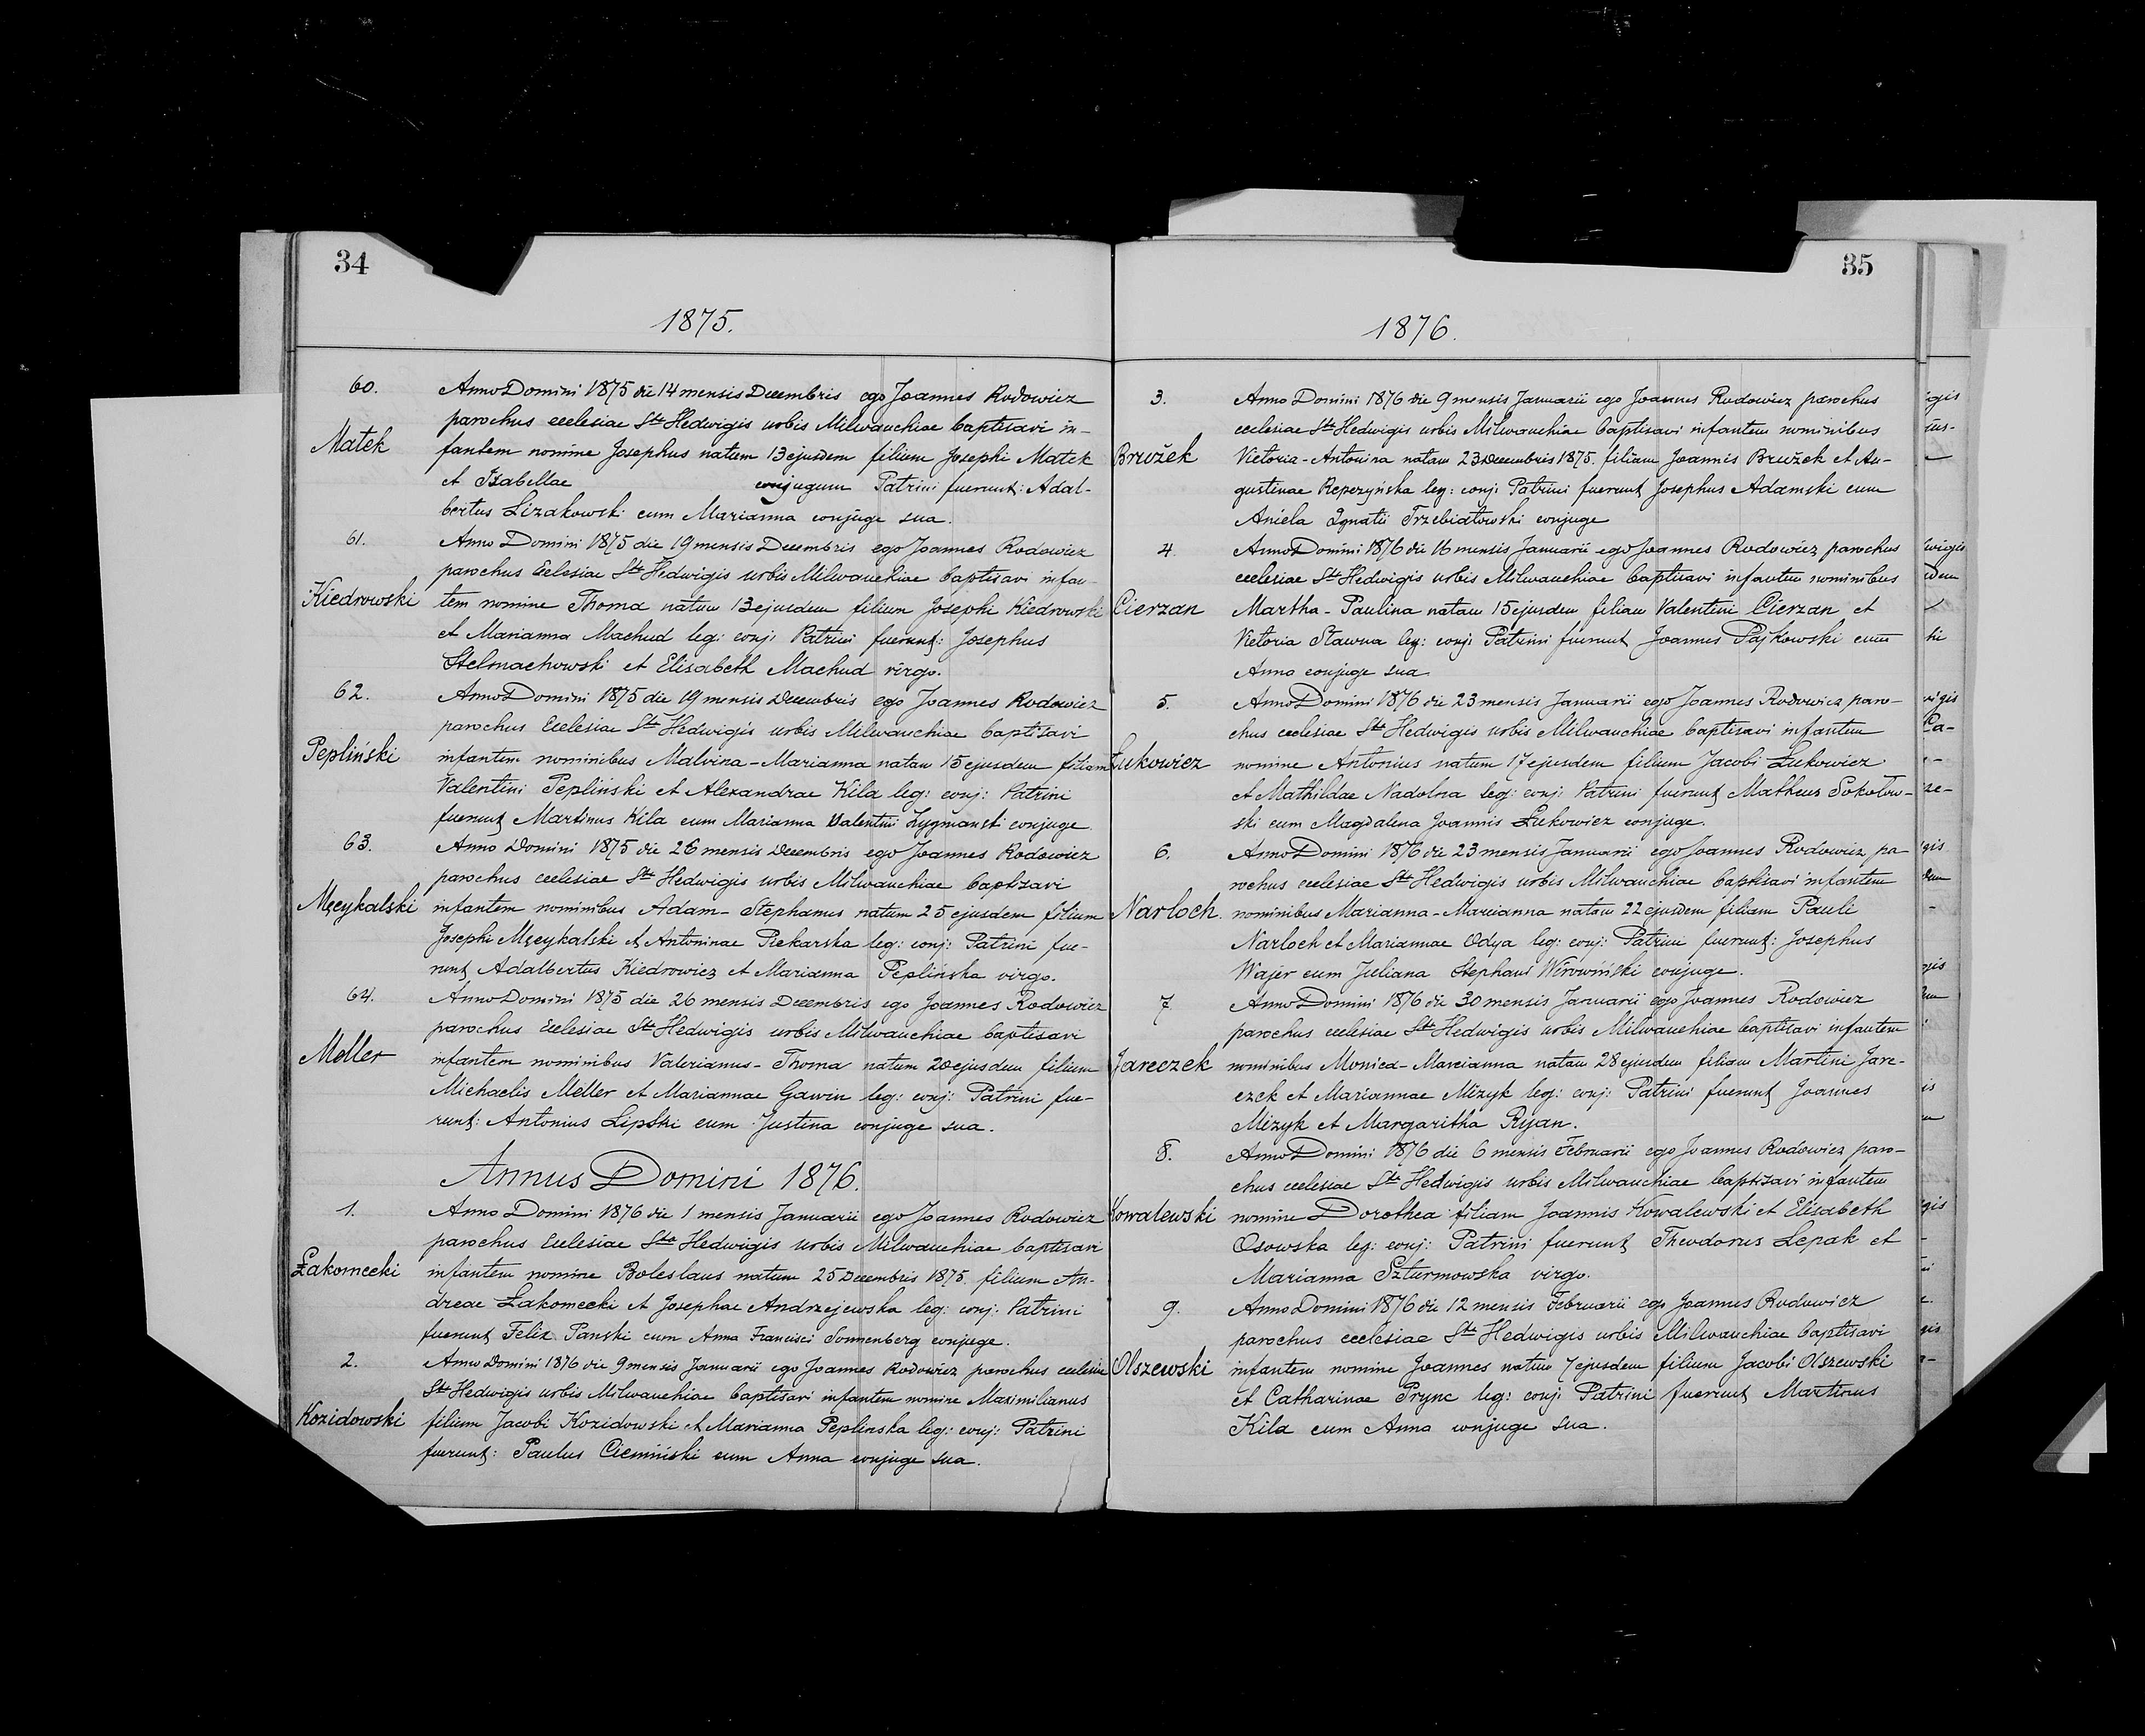 34
1875.
60.
Anno Domini 1875 die 14 mensis Decembris ego Joannes Rodowicz
parochus ecclesiae Stae Hedwigis urbis Milwauchiae baptisavi in-
Matek
fantem nomine Josephus natum 13 ejusdem filium Josephi Matek
et Izabellae conjugum Patrini fuerunt: Adal-
bertus Lizakowski cum Marianna conjuge sua.
61.
Anno Domini 1875 die 19 mensis Decembris ego Joannes Rodowicz
parochus Eclesiae Stae Hedwigis urbis Milwauchiae baptisavi infan-
Kiedrowski
tem nomine Thoma natum 13 ejusdem filium Josephi Kiedrowski
et Marianna Machud leg: conj: Patrini fuerunt: Josephus
Stelmachowski et Elisabeth Machud virgo.
62.
Anno Domini 1875 die 19 mensis Decembris ego Joannes Rodowicz
parochus Ecclesiae Stae Hedwigis urbis Milwauchiae baptisavi
Pepliński
infantem nominibus Malvina-Marianna natam 15 ejusdem filiam
Valentini Pepliński et Alexandrae Kila leg: conj: Patrini
fuerunt Martinus Kila cum Marianna Valentini Zygmanski conjuge
63.
Anno Domini 1875 die 26 mensis Decembris ego Joannes Rodowicz
parochus ecclesiae Stae Hedwigis urbis Milwauchiae baptisavi
Męcykalski
infantem nominibus Adam-Stephanus natum 25 ejusdem filium
Josephi Męcykalski et Antoninae Piekarska leg: conj: Patrini fue-
runt Adalbertus Kiedrowicz et Marianna Peplińska virgo.
64.
Anno Domini 1875 die 26 mensis Decembris ego Joannes Rodowicz
parochus Ecclesiae Stae Hedwigis urbis Milwauchiae baptisavi
Meller
infantem nominibus Valerianus-Thoma natum 20 ejusdem filium
Michaelis Meller et Mariannae Gawin leg: conj: Patrini fue-
runt: Antonius Lipski cum Justina conjuge sua.
Annus Domini 1876.
1.
Anno Domini 1876 die 1 mensis Januarii ego Joannes Rodowicz
parochus Ecclesiae Stae Hedwigis urbis Milwauchiae baptisavi
Łakomecki
infantem nomine Boleslaus natum 25 Decembris 1875. filium An-
dreae Łakomecki et Josephae Andrzejewska leg: conj: Patrini
fuerunt Felix Panski cum Anna Francisci Sonnenberg conjuge.
2.
Anno Domini 1876 die 9 mensis Januarii ego Joannes Rodowicz parochus ecclesiae
Stae Hedwigis urbis Milwauchiae baptisavi infantem nomine Maximilianus
Kozidowski
filium Jacobi Kozidowski et Marianna Peplinska leg: conj: Patrini
fuerunt: Paulus Ciemiński cum Anna conjuge sua.
35
1876.
3.
Anno Domini 1876 die 9 mensis Januarii ego Joannes Rodowicz parochus
ecclesiae Stae Hedwigis urbis Milwauchiae baptisavi infantem nominibus
Brużek
Victoria-Antonina natam 23 Decembris 1875. filiam Joannis Brużek et Au-
gustinae Repczyńska leg: conj: Patrini fuerunt Josephus Adamski cum
Aniela Ignatii Trzebiatowski conjuge
4.
Anno Domini 1876 die 16 mensis Januarii ego Joannes Rodowicz parochus
ecclesiae Stae Hedwigis urbis Milwauchiae baptisavi infantem nominibus
Cierzan
Martha-Paulina natam 15 ejusdem filiam Valentini Cierzan et
Victoria Sławna leg: conj: Patrini fuerunt Joannes Pajkowski cum
Anna conjuge sua
5.
Anno Domini 1876 die 23 mensis Januarii ego Joannes Rodowicz paro-
chus ecclesiae Stae Hedwigis urbis Milwauchiae baptisavi infantem
Łukowicz
nomine Antonius natum 17 ejusdem filium Jacobi Łukowicz
et Mathildae Nadolna leg: conj: Patrini fuerunt Matheus Sokołow-
ski cum Magdalena Joannis Łukowicz conjuge.
6.
Anno Domini 1876 die 23 mensis Januarii ego Joannes Rodowicz pa
rochus ecclesiae Stae Hedwigis urbis Milwauchiae baptisavi infantem
Narloch.
nominibus Marianna-Marcianna natam 22 ejusdem filiam Pauli
Narloch et Mariannae Odya leg: conj: Patrini fuerunt: Josephus
Wajer cum Juliana Stephani Wirowiński conjuge.
7
Anno Domini 1876 die 30 mensis Januarii ego Joannes Rodowicz
parochus ecclesiae Stae Hedwigis urbis Milwauchiae baptisavi infantem
Jareczek
nominibus Monica-Marcianna natam 28 ejusdem filiam Martini Jare-
czek et Mariannae Mizyk leg: conj: Patrini fuerunt Joannes
Mizyk et Margaritha Ryan.
8.
Anno Domini 1876 die 6 mensis Februarii ego Joannes Rodowicz paro-
chus ecclesiae Stae Hedwigis urbis Milwauchiae baptisavi infantem
Kowalewski
nomine Dorothea filiam Joannis Kowalewski et Elisabeth
Osowska leg: conj: Patrini fuerunt Theodorus Lepak et
Marianna Szturmowska virgo.
9.
Anno Domini 1876 die 12 mensis Februarii ego Joannes Rodowicz
parochus ecclesiae Stae Hedwigis urbis Milwauchiae baptisavi
Olszewski
infantem nomine Joannes natum 7 ejusdem filium Jacobi Olszewski
et Catharinae Prync leg: conj: Patrini fuerunt Martinus
Kila cum Anna conjuge sua.